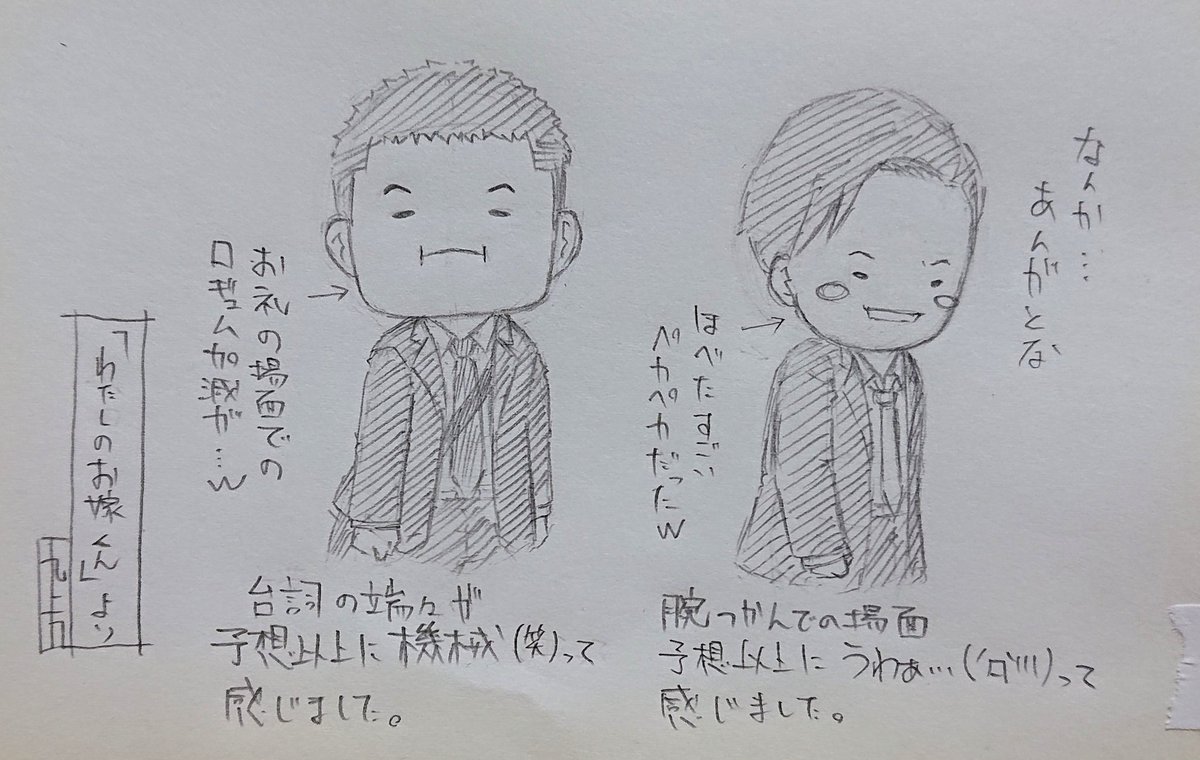 なんか…
あんがとな
ほべたすごい
ペカペカだったw
腕つかんでの場面
予想以上にうわぁ…('ロ'lll)って
感じました。
お礼の場面での
口ギュム加減が…w
台詞の端々が
予想以上に機械(笑)って
感じました。
「わたしのお嫁くん」より